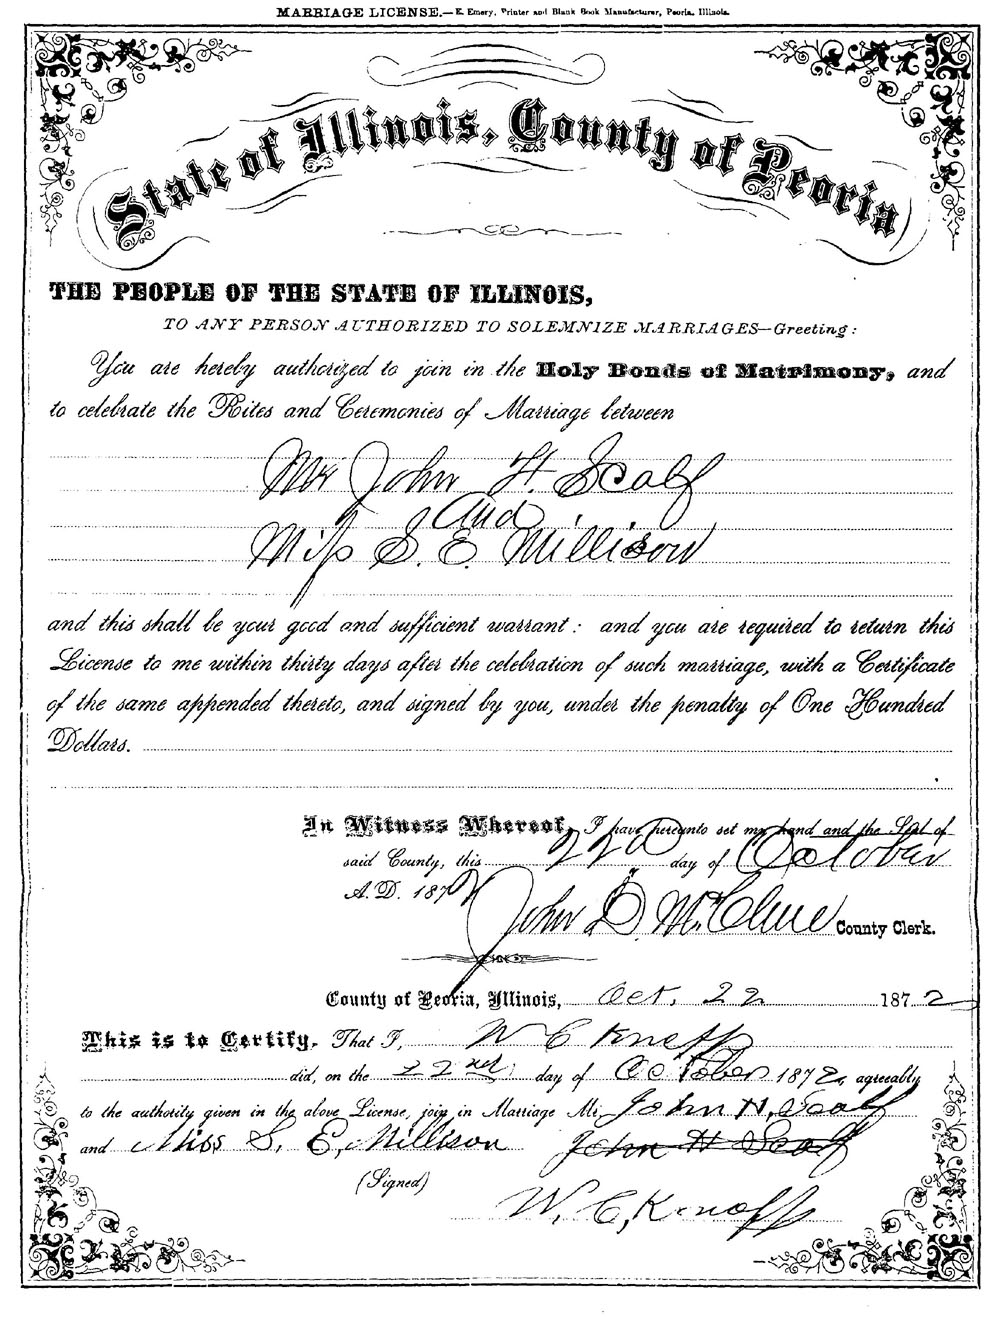 MARRIAGE LICENSE.—E. Emery, Printer and Blank Book Manufacturer, Peoria, Illinois.
State of Illinois, County of Peoria
THE PEOPLE OF THE STATE OF ILLINOIS,
TO ANY PERSON AUTHORIZED TO SOLEMNIZE MARRIAGES—Greeting:
You are hereby authorized to join in the Holy Bonds of Matrimony, and
to celebrate the Rites and Ceremonies of Marriage between
Mr John H. Scalf
And
Miss S. E. Millison
and this shall be your good and sufficient warrant: and you are required to return this
License to me within thirty days after the celebration of such marriage, with a Certificate
of the same appended thereto, and signed by you, under the penalty of One Hundred
Dollars.
In Witness Whereof, I have hereunto set my hand and the Seal of
said County, this 22d day of October
A.D. 1872
John D. McClure County Clerk.
County of Peoria, Illinois, Oct. 22 1872
This is to Certify, That I, W C Knoff
did, on the 22nd day of October 1872, agreeably
to the authority given in the above License, join in Marriage Mr John H. Scalf
and Miss S. E. Millison John H Scalf
(Signed)
W. C. Knoff